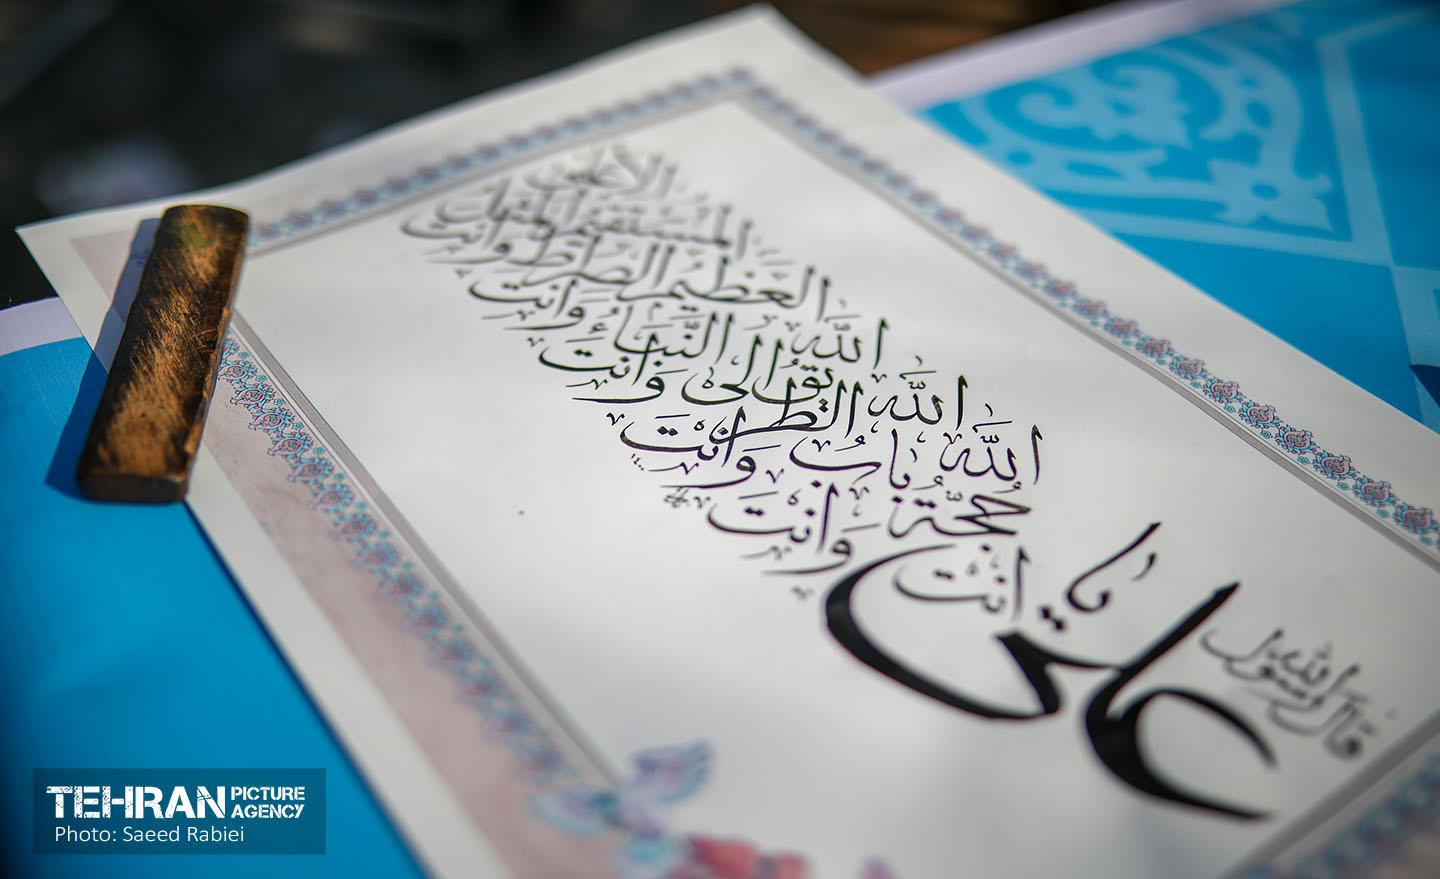 قال رسول الله
یا علی
انت حُجَّةُ الله
وَانتَ بابُ الله
وَانتَ الطریقُ الی الله
وَانتَ النَّبَاءُ العَظیم
وَانتَ الصراط المُستَقیم
الاعلی
TEHRAN PICTURE AGENCY
Photo: Saeed Rabiei